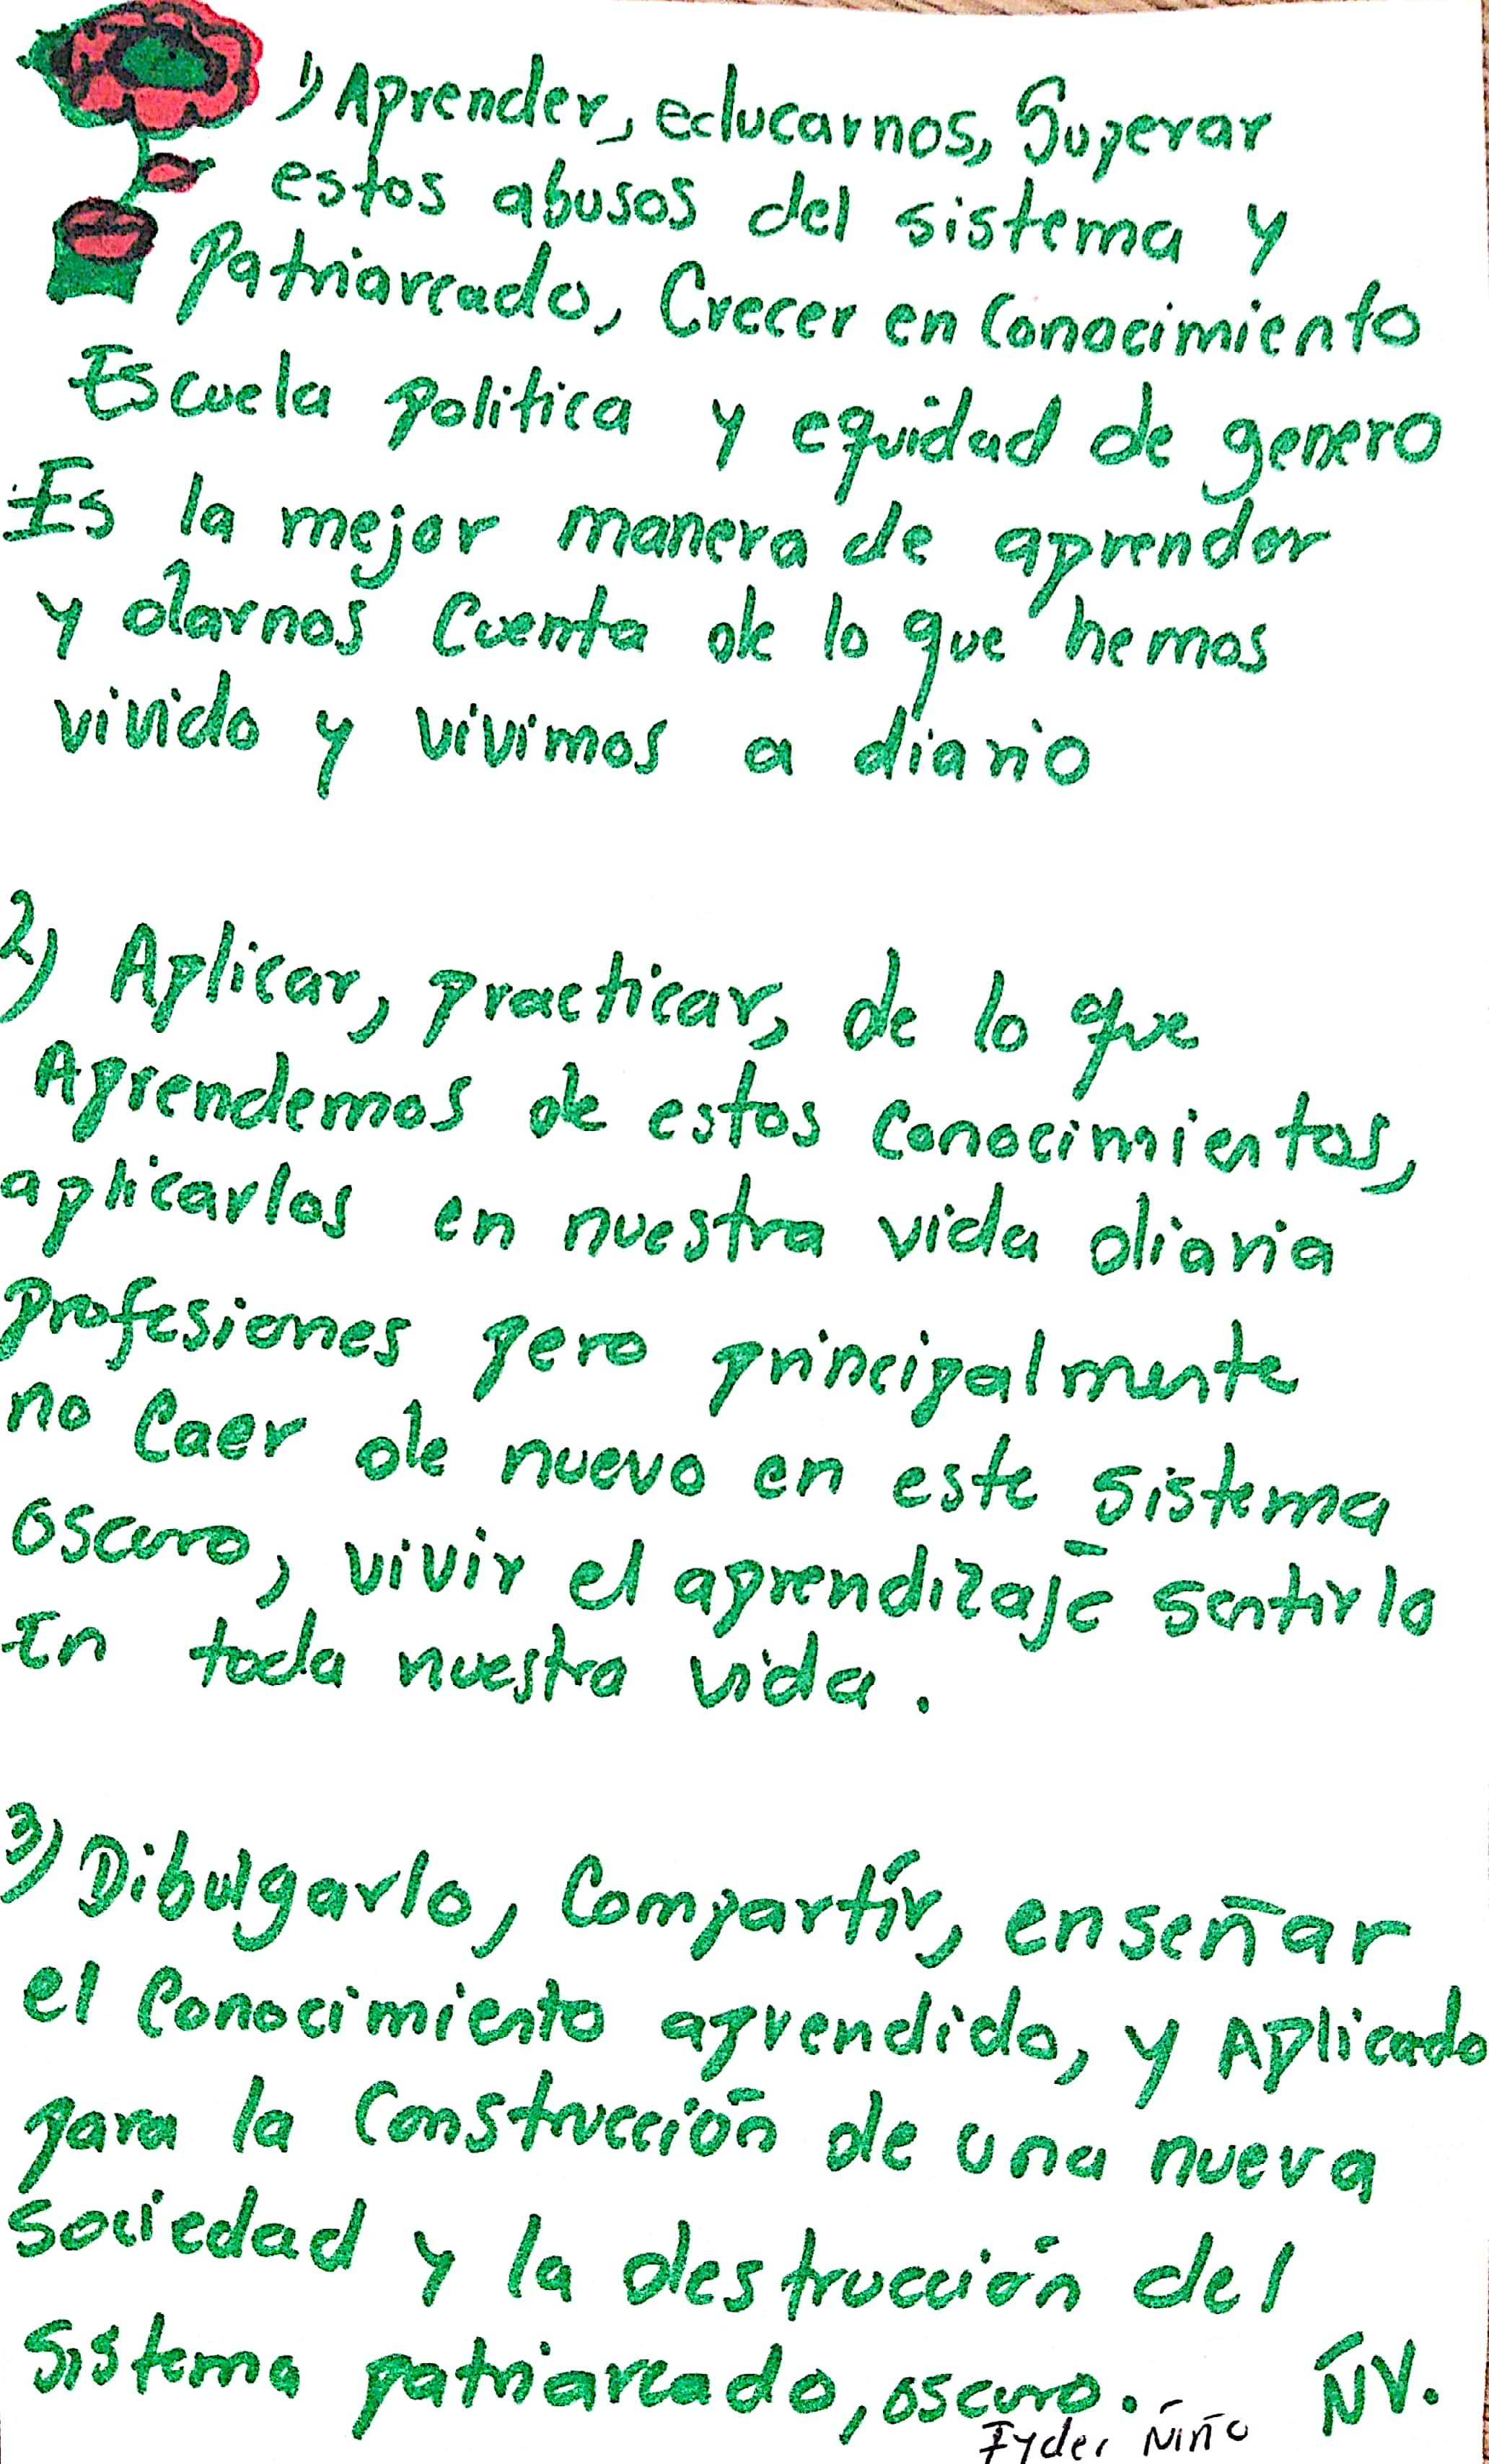 1) Aprender, educarnos, Superar
estos abusos del sistema y
Patriarcado, Crecer en Conocimiento
Escuela politica y equidad de genero
Es la mejor manera de aprender
y darnos Cuenta de lo que hemos
vivido y vivimos a diario
2) Aplicar, practicar, de lo que
Aprendemos de estos Conocimientos,
aplicarlos en nuestra vida diaria
profesiones pero principalmente
no Caer de nuevo en este sistema
oscuro, vivir el aprendizaje sentirlo
En toda nuestra vida.
3) Dibulgarlo, Compartír, enseñar
el Conocimiento aprendido, y Aplicado
para la Construcción de una nueva
sociedad y la destrucción del
Sistema patriarcado, oscuro. ÑV.
Eyder Niño